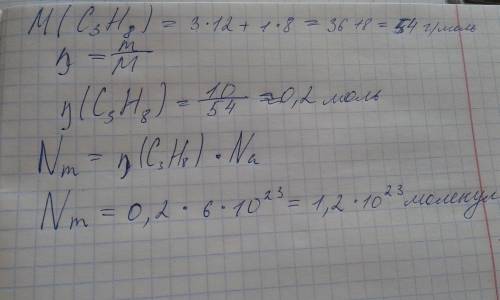 M(C₃H₈) = 3·12 + 1·8 = 36 18 = 54 г/моль
η = m/M
η(C₃H₈) = 10/54 ≈ 0,2 моль
Nm = η(C₃H₈) · Na
Nm = 0,2 · 6 · 10²³ = 1,2 · 10²³ молекул